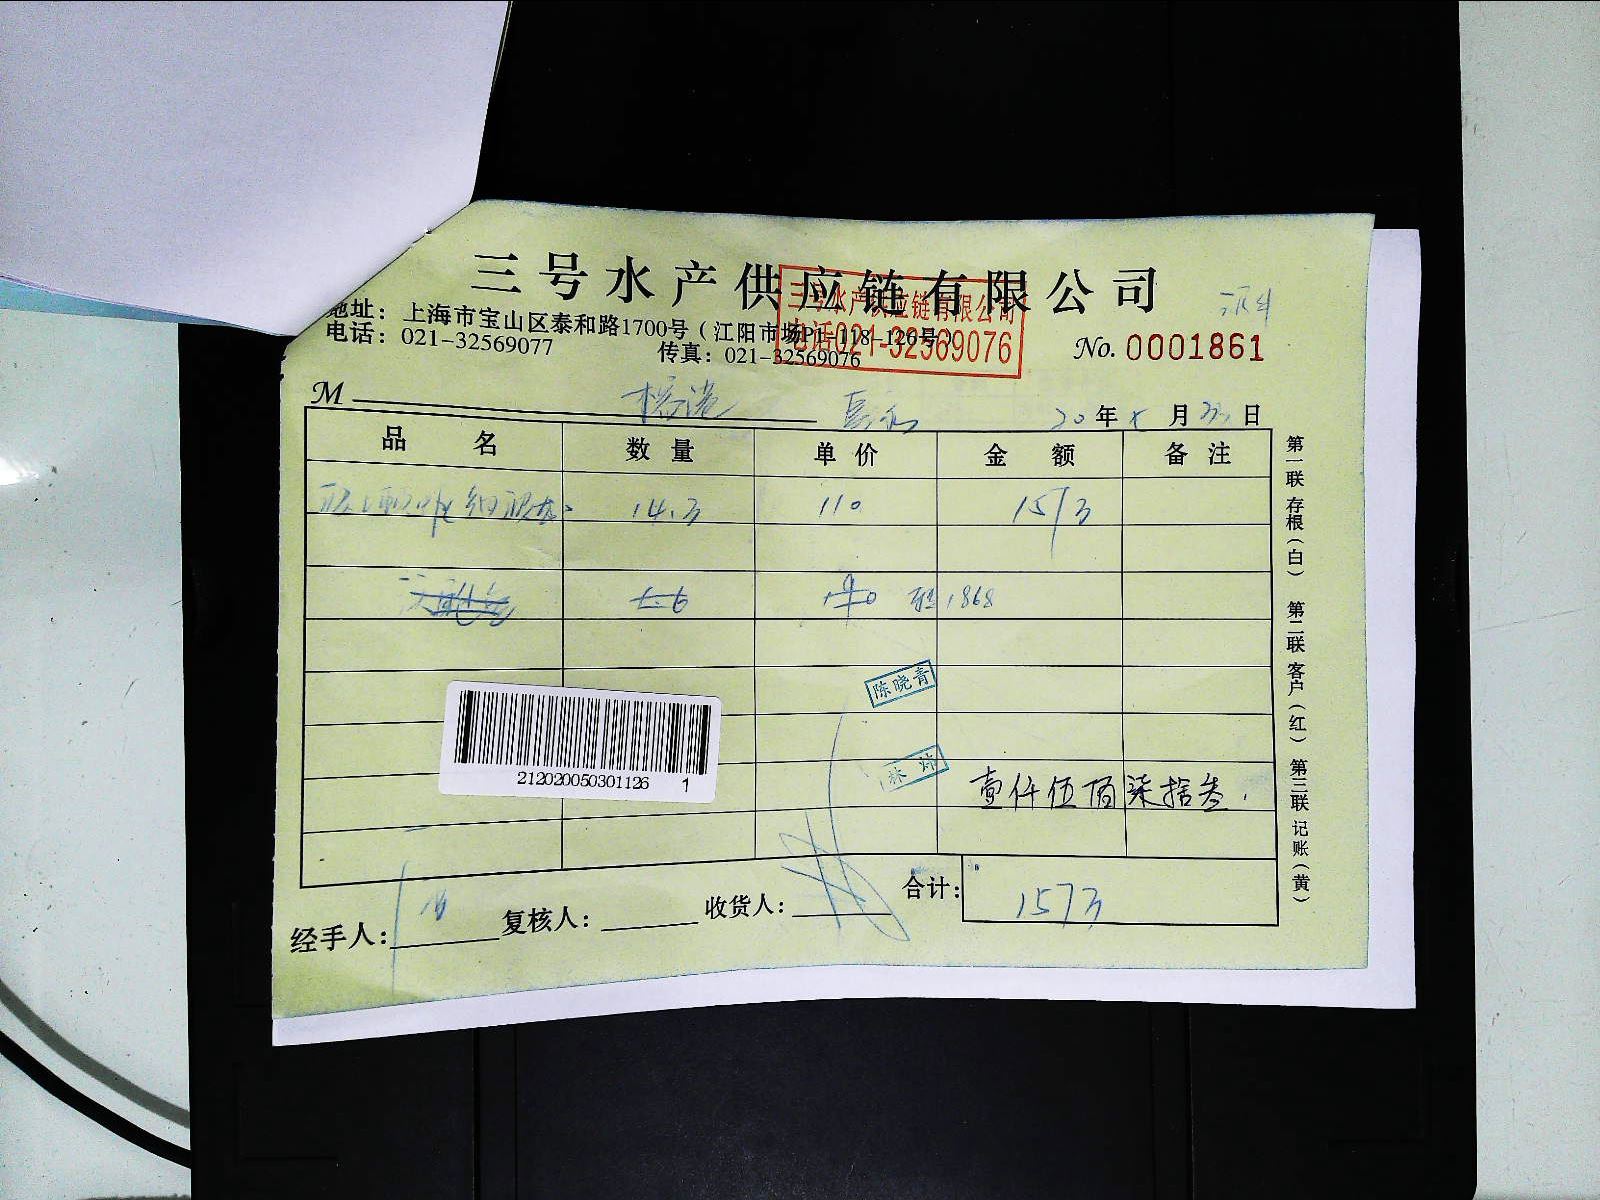 三号水产供应链有限公司
地址：上海市宝山区泰和路1700号（江阳市场P1-118-126号）
电话：021-32569077
传真：021-32569076
三号水产供应链有限公司
电话021-32569076
No. 0001861
M
20年 月 日
品名 数量 单价 金额 备注
14.3 110 1573
1868
陈晓青
林炜
壹仟伍佰柒拾叁
212020050301126 1
合计： 1573
经手人： 复核人： 收货人：
第一联 存根（白） 第二联 客户（红） 第三联 记账（黄）